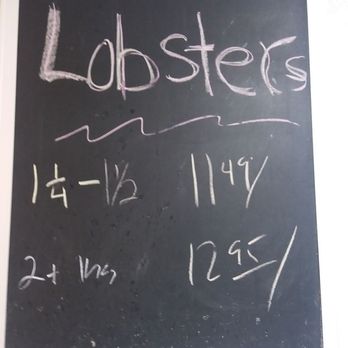 Lobsters
1 1/4 - 1 1/2 11 49/
2+ lbs 12 95/